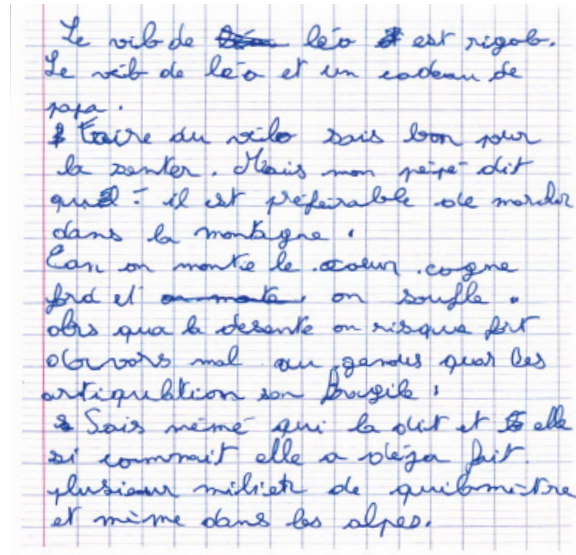 Le vélo de léo est rigolo.
Le vélo de léo et un cadeau de
papa.
Faire du vélo sais bon pour
la senter. Mais mon pépé dit
que : il est préférable de marcher
dans la montagne.
Can on monte le coeur cogne
ford et on soufle.
alors qua la desente on risque fort
d'avoirs mal au genous quar les
artiqulation son fragile.
Sais mémé qui la dit et elle
si connait elle a déja fait
plusieur milier de quilomètre
et même dans les alpes.